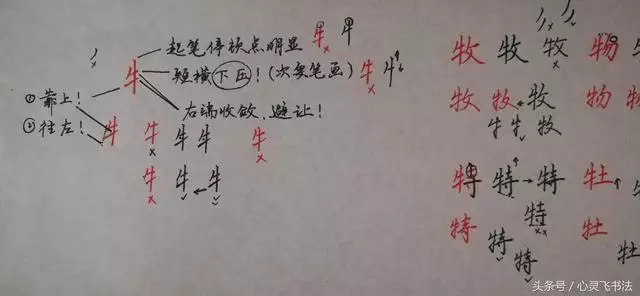 起笔停顿点明显 牛 牛
牛 短横下压！(次要笔画) 牛 牛
①靠上！
②往左！
右端收敛、避让！
牛 牛 牛 牛 牛
牛 牛 牛
牧 牧 牧 物
牧 牧 牧 物 物
牛 牛 牧
特 特 特 牡
特 特 特 牡
特 牡
头条号 / 心灵飞书法